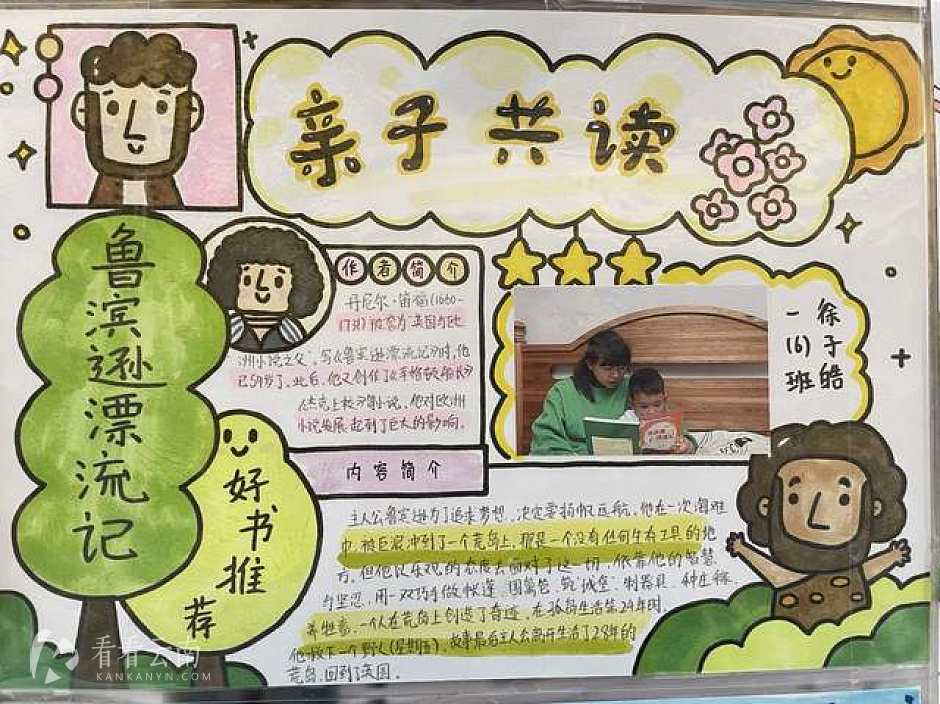 亲子共读
鲁滨逊漂流记
好书推荐
作者简介
丹尼尔·笛福(1660-
1731)被誉为"英国与欧
洲小说之父",写《鲁宾逊漂流记》时,他
已59岁了。此后,他又创作了《辛格顿船长》
《杰克上校》等小说,他对欧洲
小说发展起到了巨大的影响。
徐子皓
一(6)班
内容简介
主人公鲁宾逊为了追求梦想,决定要扬帆远航,他在一次海难
中,被巨浪冲到了一个荒岛上,那是一个没有任何生存工具的地
方。但他以乐观的态度去面对了这一切,依靠他的智慧
与坚忍,用一双巧手做帐篷、围篱笆、制器具、种庄稼
并牲畜,一个人在荒岛上创造了奇迹,在孤岛生活第24年时,
他救下一个野人(星期五),故事最后主人公离开生活了28年的
荒岛,回到了英国。
看看云南
KANKANYN.COM